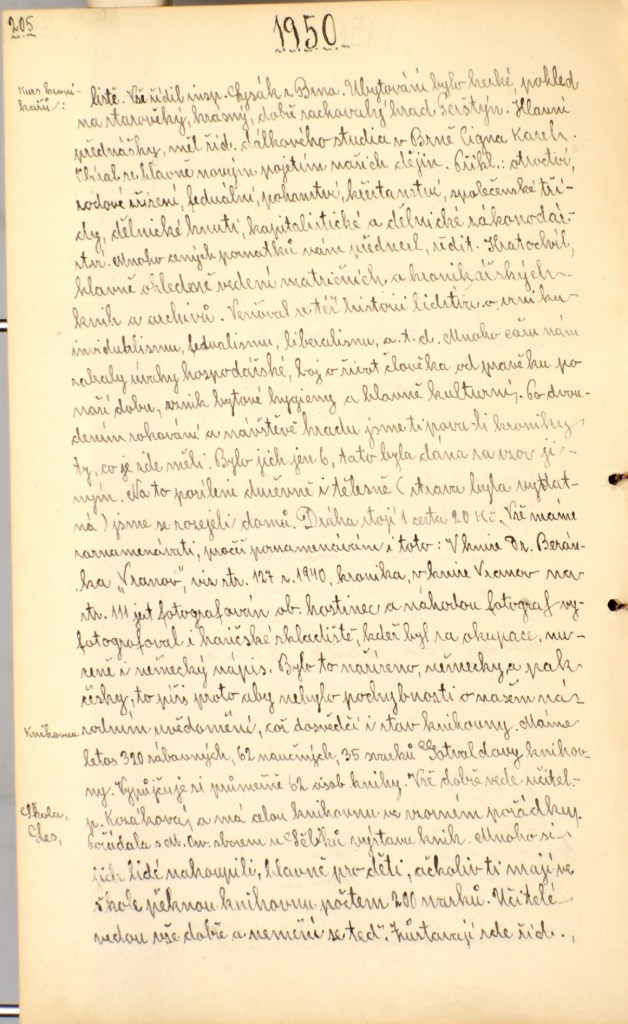 205
1950
Kurs kroni-
kářů:
liště. Vše řídil insp. Lysák z Brna. Ubytování bylo hezké, pohled
na starověký, krásný, dobře zachovalý hrad Perštýn. Hlavní
přednášky, měl řid. dálkového studia v Brně Cigna Karel.
Obíral se hlavně novým pojetím našich dějin. Příkl.: otroctví,
rodové zřízení, feduální, pohanství, křesťanství, společenské tří-
dy, dělnické hnutí, kapitalistické a dělnické zákonodár-
ství. Mnoho cenných poznatků nám přednesl, ředit. Kratochvíl,
hlavně ohledně vedení matričních a kronikářských
knih a archivů. Venoval se též historii lidstva o vzniku
fedualismu, liberalismu, a. t. d. Mnoho času nám
zabraly úvahy hospodářské, boj o život člověka od pravěku po
naší dobu, vznik bytové hygieny a hlavně kulturní. Po dvou-
denním rokování a návštěvě hradu jsme tipova-li kroniky,
ty, co je zde měli. Bylo jich jen 6, tato byla dána za vzor ji-
ným. Na to posíleni duševně i tělesně (strava byla vydat-
ná) jsme se rozejeli domů. Dráha stojí 1 cesta 20 Kč. Vše máme
zaznamenávati, pročež poznamenávám i toto: V knize Dr. Berán-
ka "Vranov", viz str. 127 r. 1940, kronika, v knize Vranov na
str. 111 jest fotografován ob. hostinec a náhodou fotograf vy-
fotografoval i hasičské skladiště, kdež byl za okupace, nu-
ceně i německý nápis. Bylo to nařízeno, německy, a pak
česky, to píši proto aby nebylo pochybnosti o našem ná-
rodním uvědomění, což dosvědčí i stav knihovny. Máme
Knihovna
letos 320 zábavných, 62 naučných, 35 svazků Gotvaldovy knihov-
ny. Vypůjčuje si průměrně 62 osob knihy. Vše dobře vede učitel.
Škola,
Les,
p. Kosáková, a má celou knihovnu ve vzorném pořádku.
Pořádala s M. Osv. sborem u výstavu knih. Mnoho si
jich lidé nakoupili, hlavně pro děti, ačkoliv ti mají ve
škole pěknou knihovnu počtem 200 svazků. Učitelé
vedou vše dobře a nemění se teď. Zůstavají zde řid.,